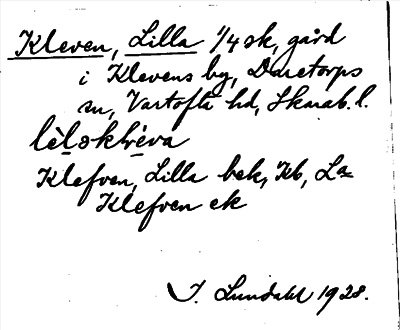 Kleven, Lilla 1/4 sk, gård
i Klevens by, Daretorps
sn, Vartofta hd, Skarab. l.
lèlɔklréva
Klefven, Lilla bek, Kb, La
Klefven ek
I. Lundahl 1928.